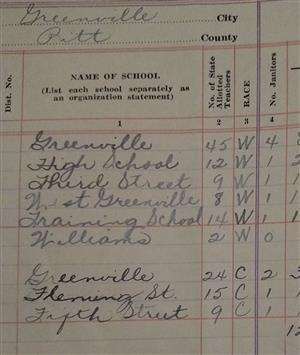 Greenville City
Pitt County
Dist. No.
NAME OF SCHOOL
(List each school separately as
an organization statement)
No. of State
Allotted
Teachers
RACE
No. Janitors
1 2 3 4
Greenville 45 W 4
High School 12 W 1
Third Street 9 W 1 1
W st Greenville 8 W 1 1
Training School 14 W 1 1
Williams 2 W 0
Greenville 24 C 2
Fleming St. 15 C 1 1
Fifth Street 9 C 1 1